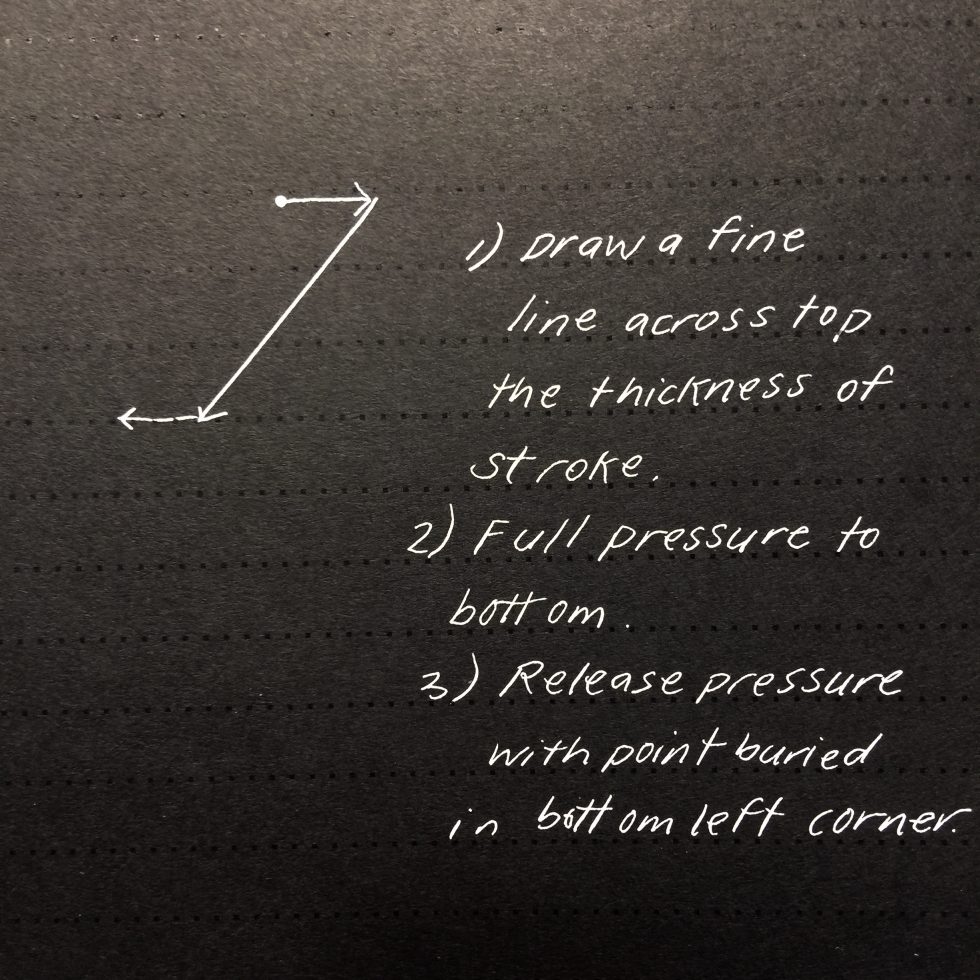 1) Draw a fine
line across top
the thickness of
stroke.
2) Full pressure to
bottom.
3) Release pressure
with point buried
in bottom left corner.